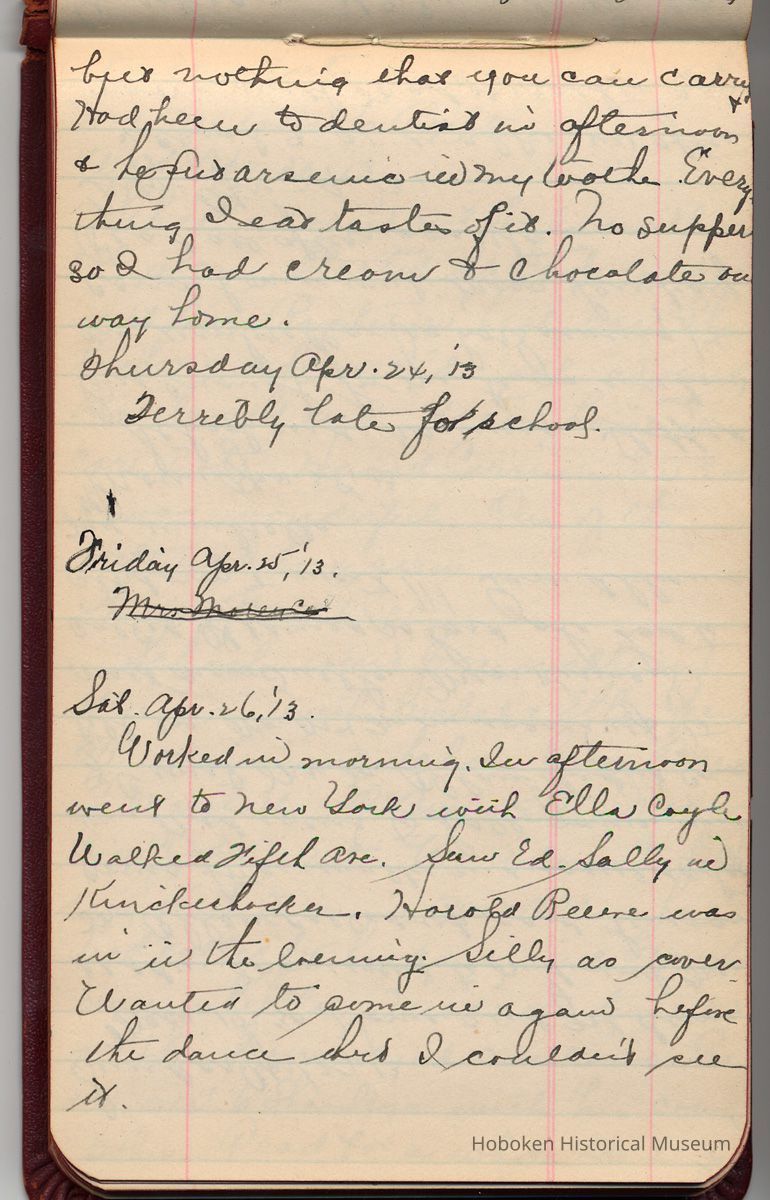 but nothing that you can carry
Had been to dentist in afternoon &
& he put arsenic in my tooth. Every
thing I eat tastes of it. No supper
so I had cream & chocolate on
way home.
Thursday Apr. 24, '13
Terribly late for school.
Friday Apr. 25, '13.
Mrs.
Sat. Apr. 26, '13.
Worked in morning. In afternoon
went to New York with Ella Coyle
Walked Fifth Ave. Saw Ed. Sally in
Knickerbocker. Harold Beere was
in in the evening. Silly as ever
Wanted to come in again before
the dance but I couldn't see
it.
Hoboken Historical Museum